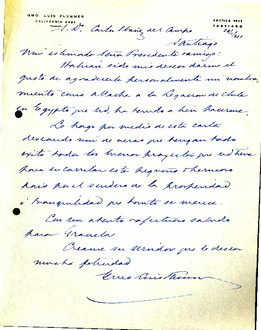 GMO. LUIS PLUMMER
CALIFORNIA
SANTIAGO
S. D. Carlos Ibáñez del Campo
Santiago
Mi estimado Señor Presidente i amigo:
Habrían sido mis deseos darme el
gusto de agradecerle personalmente mi nombra
miento como attache a la Legacion de Chile
en Egipto que Ud, ha tenido a bien hacerme.
Lo hago por medio de esta carta
deseando una vez mas que tengan todo
exito todos los buenos proyectos que Ud tiene
para encarrilar este pequeño i hermoso
pais por el sendero de la prosperidad
i tranquilidad que tanto se merece.
Con un abrazo i afectuoso saludo
para Graciela
Creame su servidor que le desea
mucha felicidad